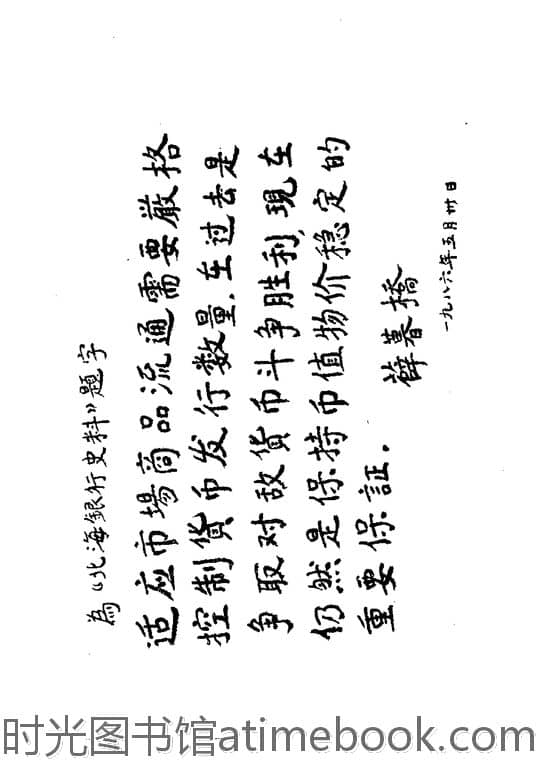 为《北海銀行史料》题字
适应市場商品流通需要严格
控制货币发行数量.在过去是
争取对敌货币斗争胜利,现在
仍然是保持币值物价稳定的
重要保証.
薛暮橋
一九八六年五月卅日
时光图书馆atimebook.com